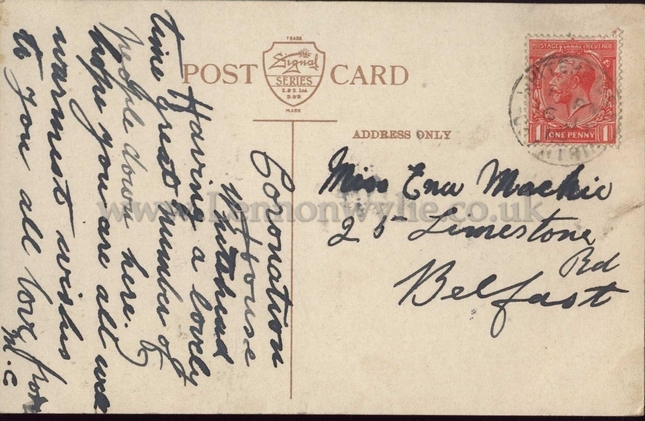 POST CARD
TRADE
Signal
SERIES
E. & S. Ltd.
DUB
MARK
ADDRESS ONLY
POSTAGE REVENUE
1 ONE PENNY 1
Coronation
House
Whitehead
Having a lovely
time great number of
people down here.
hope you are all well
warmest wishes
to you all love from
M.C
Miss Ena Mackie
25 Limestone
Rd
Belfast
www.LennonWylie.co.uk